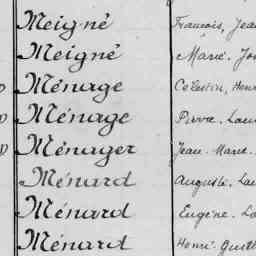 Meigné François, Jea
Meigné Marie-Jos
D Ménage Célestin, Henr
D Ménage Pierre-Lau
D Ménager Jean-Marie
Ménard Auguste-Lau
Ménard Eugène-Lo
Ménard Henri-Gust